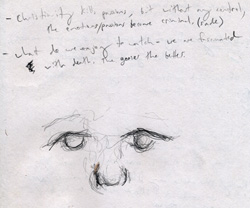 - christianity kills passions, but without any control,
the emotions/passions become criminal. (sade)
- what do we enjoy to watch - we are fascinated
with death. the gorier the better.